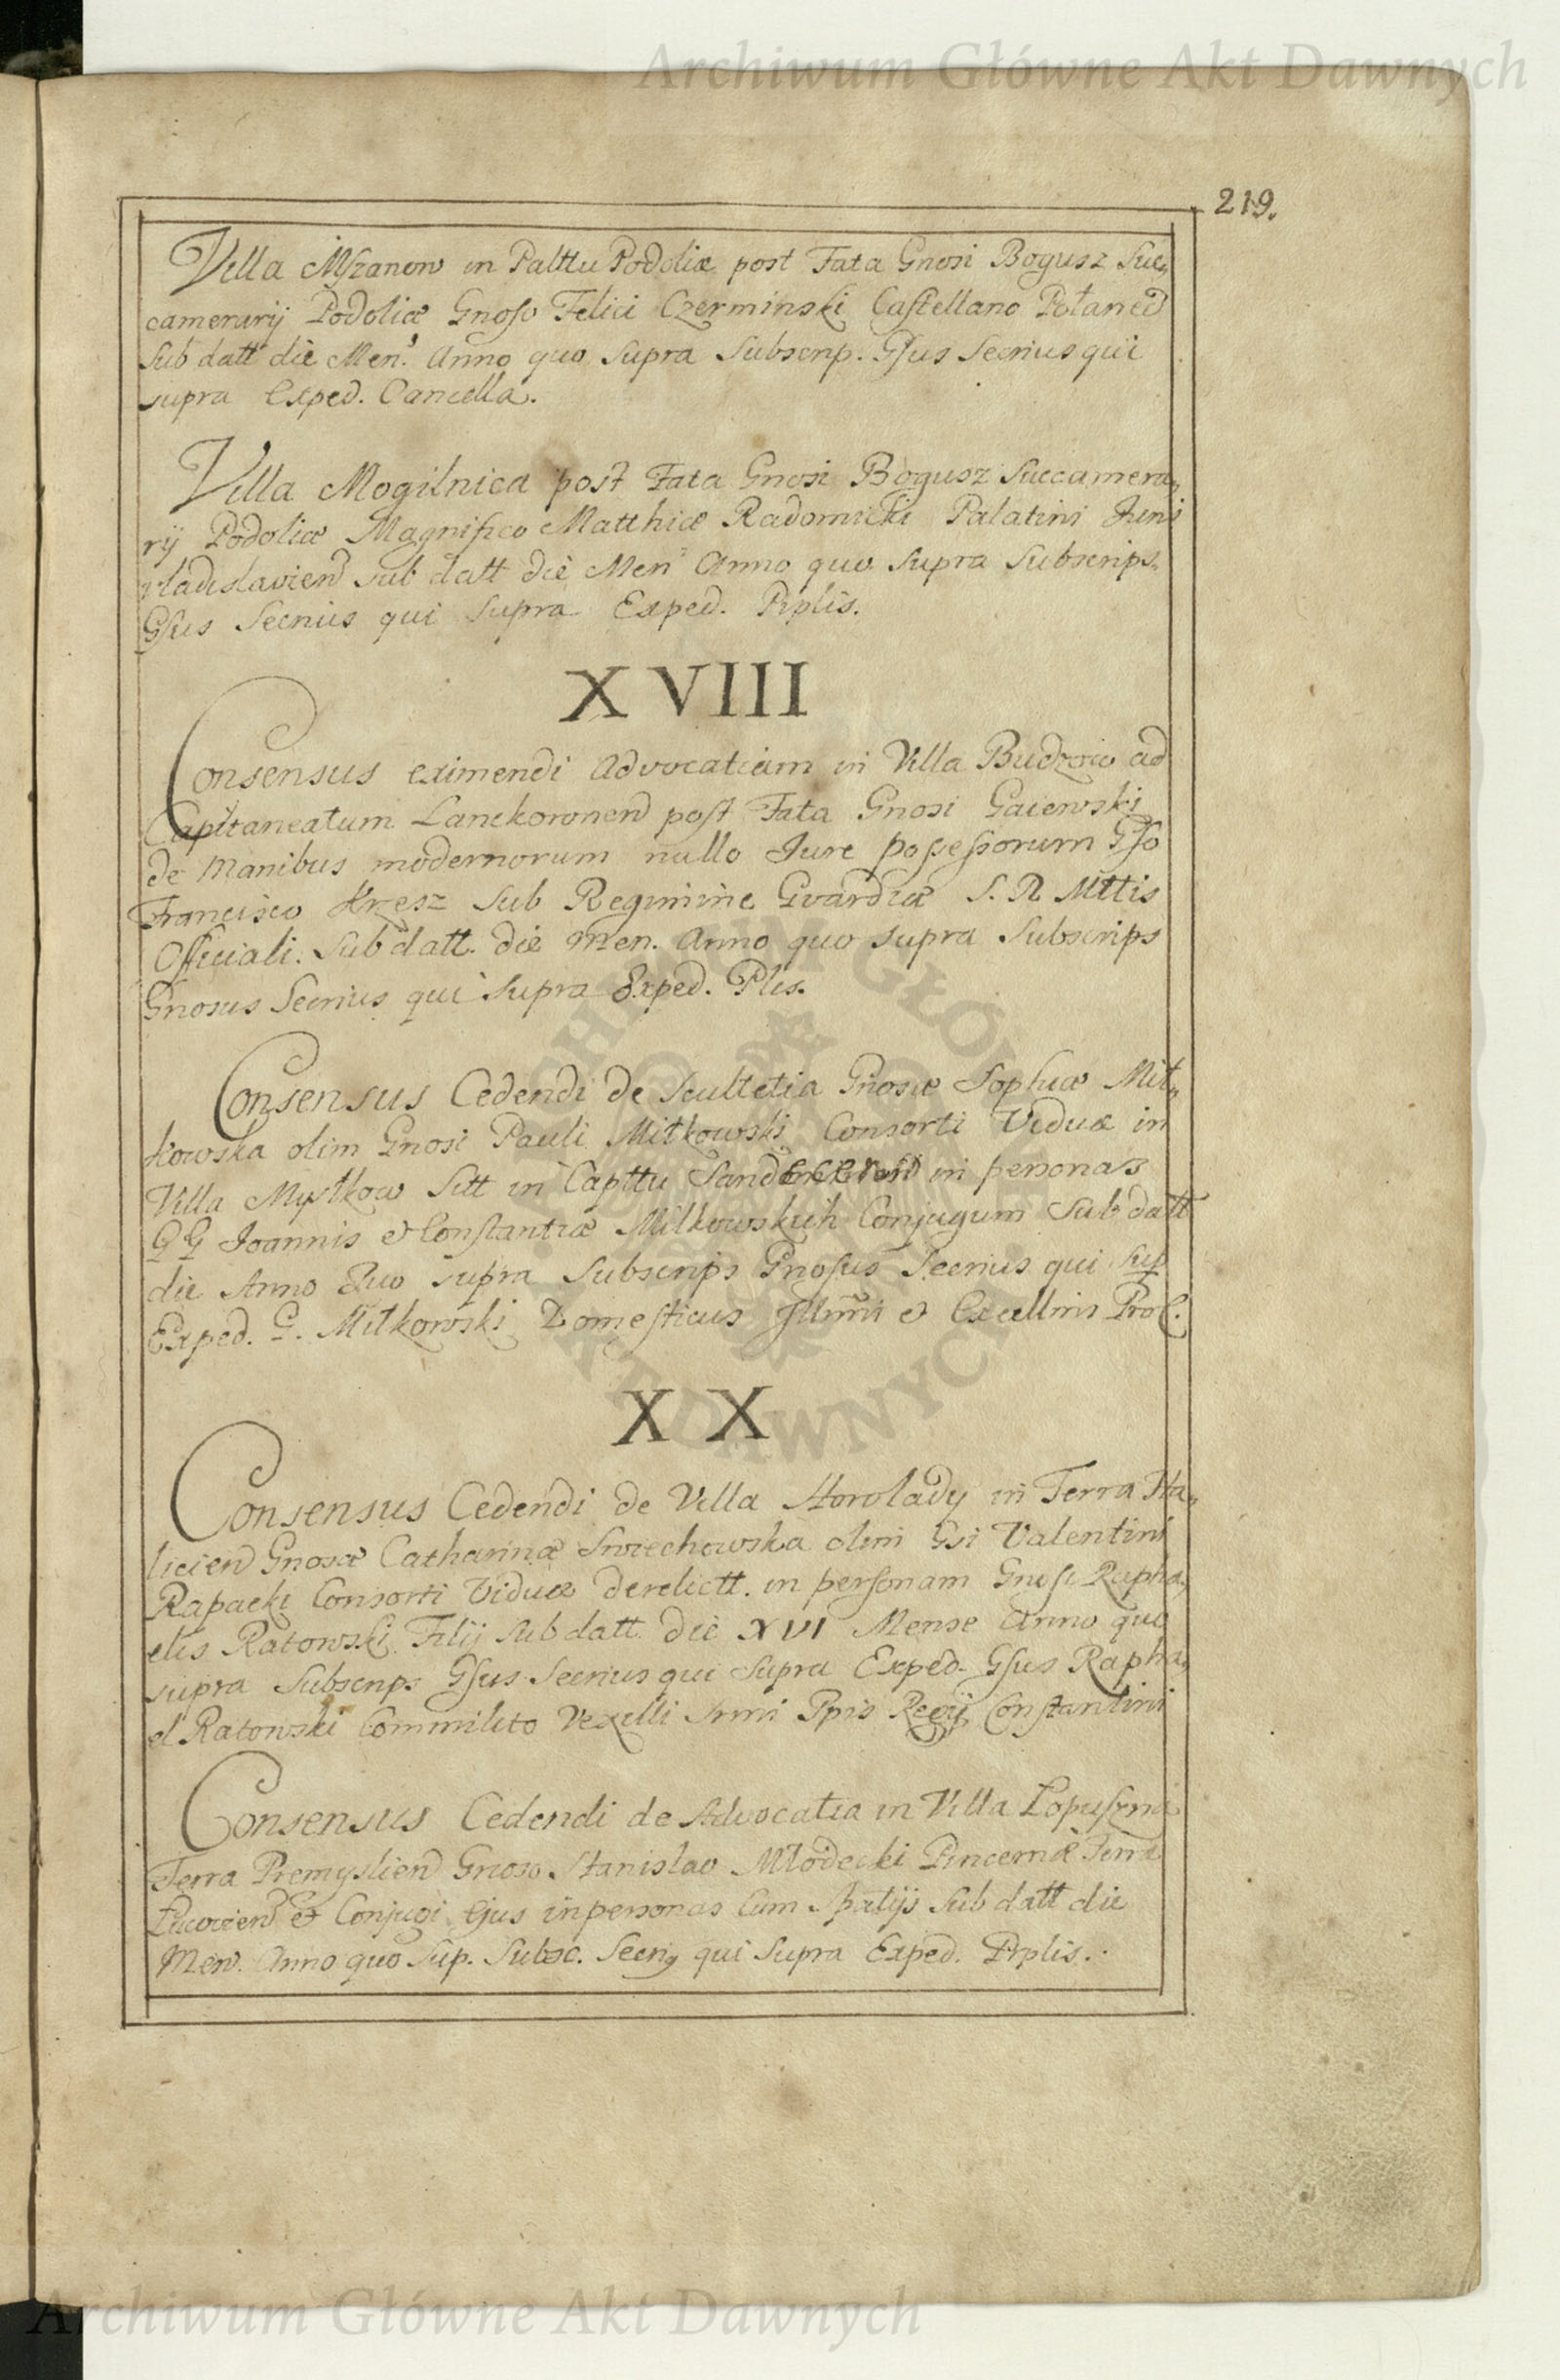 Archiwum Główne Akt Dawnych
219.
Villa Mszanow in Palttu Podoliæ post Fata Gnosi Bogusz Suc,,
camerarij Podoliæ Gnoso Felici Czerminski Castellano Połaned
Sub datt die Men. Anno quo Supra Subscrip. Gsus Secrius qui
supra Exped. Cancella.
Villa Mogilnica post Fata Gnosi Bogusz Succamera,,
rij Podoliæ Magnifico Matthiæ Radomicki Palatini Juni
vladislaviend sub datt die Men Anno quo Supra Subscrips.
Gsus Secrius qui Supra Exped. Prplis.
XVIII
Consensus eximendi Advocatiam in Villa Budzow ad
Capitaneatum Lanckoronend post Fata Gnosi Gaiewski
de Manibus modernorum nullo Jure possessorum Gso
Francisco Kresz Sub Regimine Gvardiæ S. R Mttis
Officiali. Sub datt. die Men. Anno quo Supra Subscrips
Gnosus Secrius qui Supra Exped. Plis.
Consensus Cedendi de Scultetia Gnosæ Sophiæ Mit,,
kowska olim Gnosi Pauli Mitkowski Consorti Viduæ in
Villa Mystkow Sitt in Capttu in personas
GG Joannis et Constantiæ Milkowskich Conjugum Sub datt
die Anno Quo supra Subscrips Gnosus Secrius qui Sup
Exped. G. Mitkowski Domesticus Illmi et Excellmi ProC.
XX
Consensus Cedendi de Villa Horolady in Terra Ha,,
liciend Gnosæ Catharinæ Swiechowska olim Gsi Valentini
Rapacki Consorti Viduæ derelictt. in personam Gnosi Rapha,,
elis Ratowski Filij sub datt die XVI Mense Anno quo
supra Subscrips Gsus Secrius qui Supra Exped. Gsus Rapha,,
el Ratowski Commilito Vexilli Srmi Ppis Regij Constantini
Consensus Cedendi de Advocatia in Villa Łopuszna
Terra Premysliend Gnoso Stanislao Młodecki Pincernæ Terra
et Conjugi Ejus in personas Cum Spatijs Sub datt die
Men. Anno quo Sup. Subsc. Secrig qui Supra Exped. Prplis.
Archiwum Główne Akt Dawnych